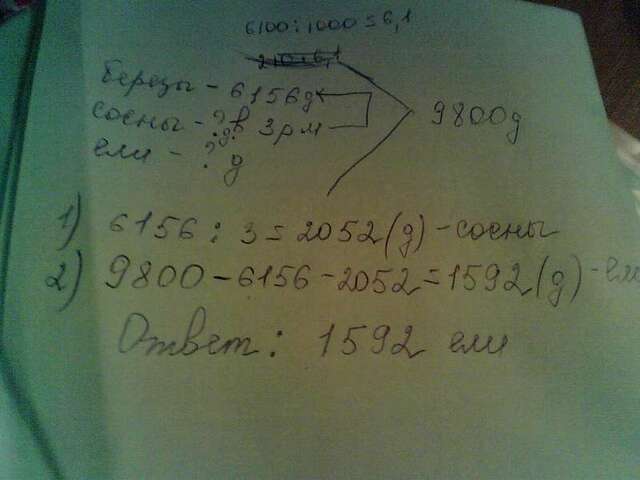 6100 : 1000 = 6,1
берёзы - 6156д
сосны - ? в 3 р м
9800д
ели - ? д
1) 6156 : 3 = 2052 (д) - сосны
2) 9800 - 6156 - 2052 = 1592 (д) - ели
Ответ: 1592 ели